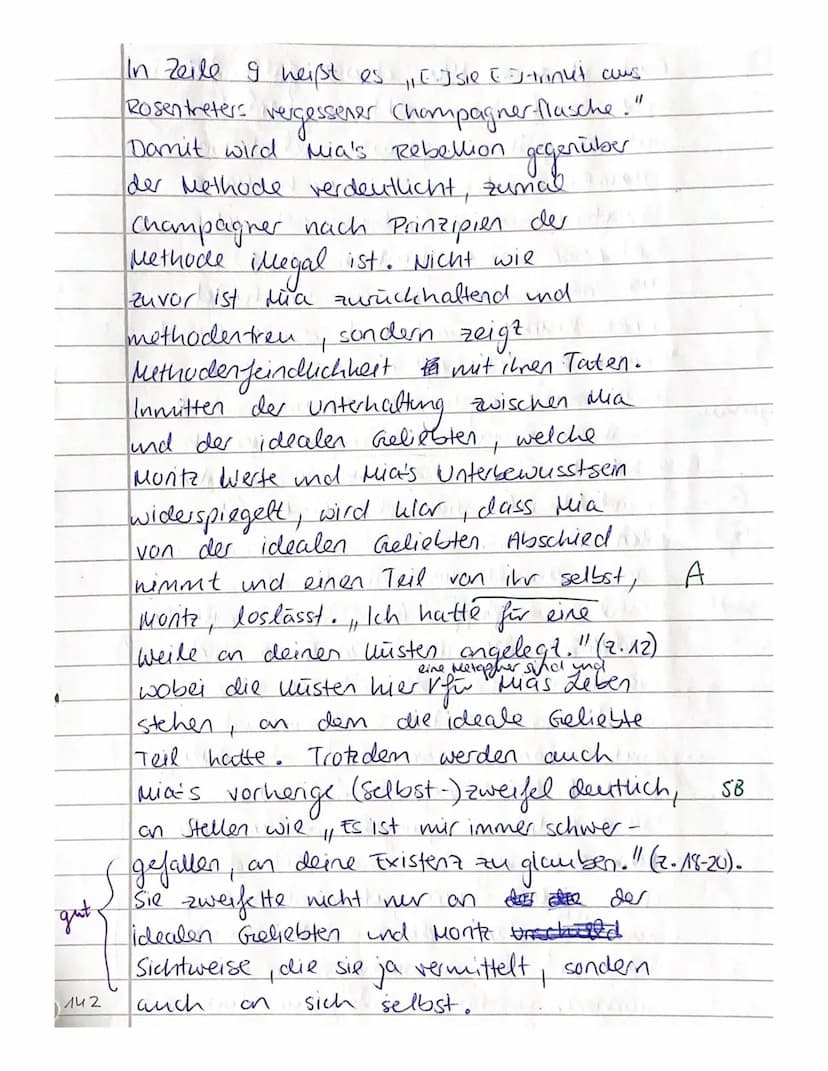 In Zeile 9 heißt es „[..] sie [..] trinkt aus
Rosentreters vergessener Champagnerflasche."
Damit wird Mia's Rebellion gegenüber
der Methode verdeutlicht, zumal
Champagner nach Prinzipien der
Methode illegal ist. Nicht wie
zuvor ist Mia zurückhaltend und
methodentreu, sondern zeigt
Methodenfeindlichkeit mit ihren Taten.
Inmitten der Unterhaltung zwischen Mia
und der idealen Geliebten, welche
Moritz Werte und Mia's Unterbewusstsein
widerspiegelt, wird klar, dass Mia
von der idealen Geliebten Abschied
nimmt und einen Teil von ihr selbst, A
Moritz, loslässt. „Ich hatte für eine
Weile an deinen Küsten angelegt." (Z.12)
eine Metapher sind und
wobei die Küsten hier für Mias Leben
stehen, an dem die ideale Geliebte
Teil hatte. Trotzdem werden auch
Mia's vorherige (Selbst-)zweifel deutlich, SB
an Stellen wie „Es ist mir immer schwer-
gefallen, an deine Existenz zu glauben." (Z.18-20).
Sie zweifelte nicht nur an der
gut
idealen Geliebten und Moritz
Sichtweise, die sie ja vermittelt, sondern
142 auch an sich selbst.